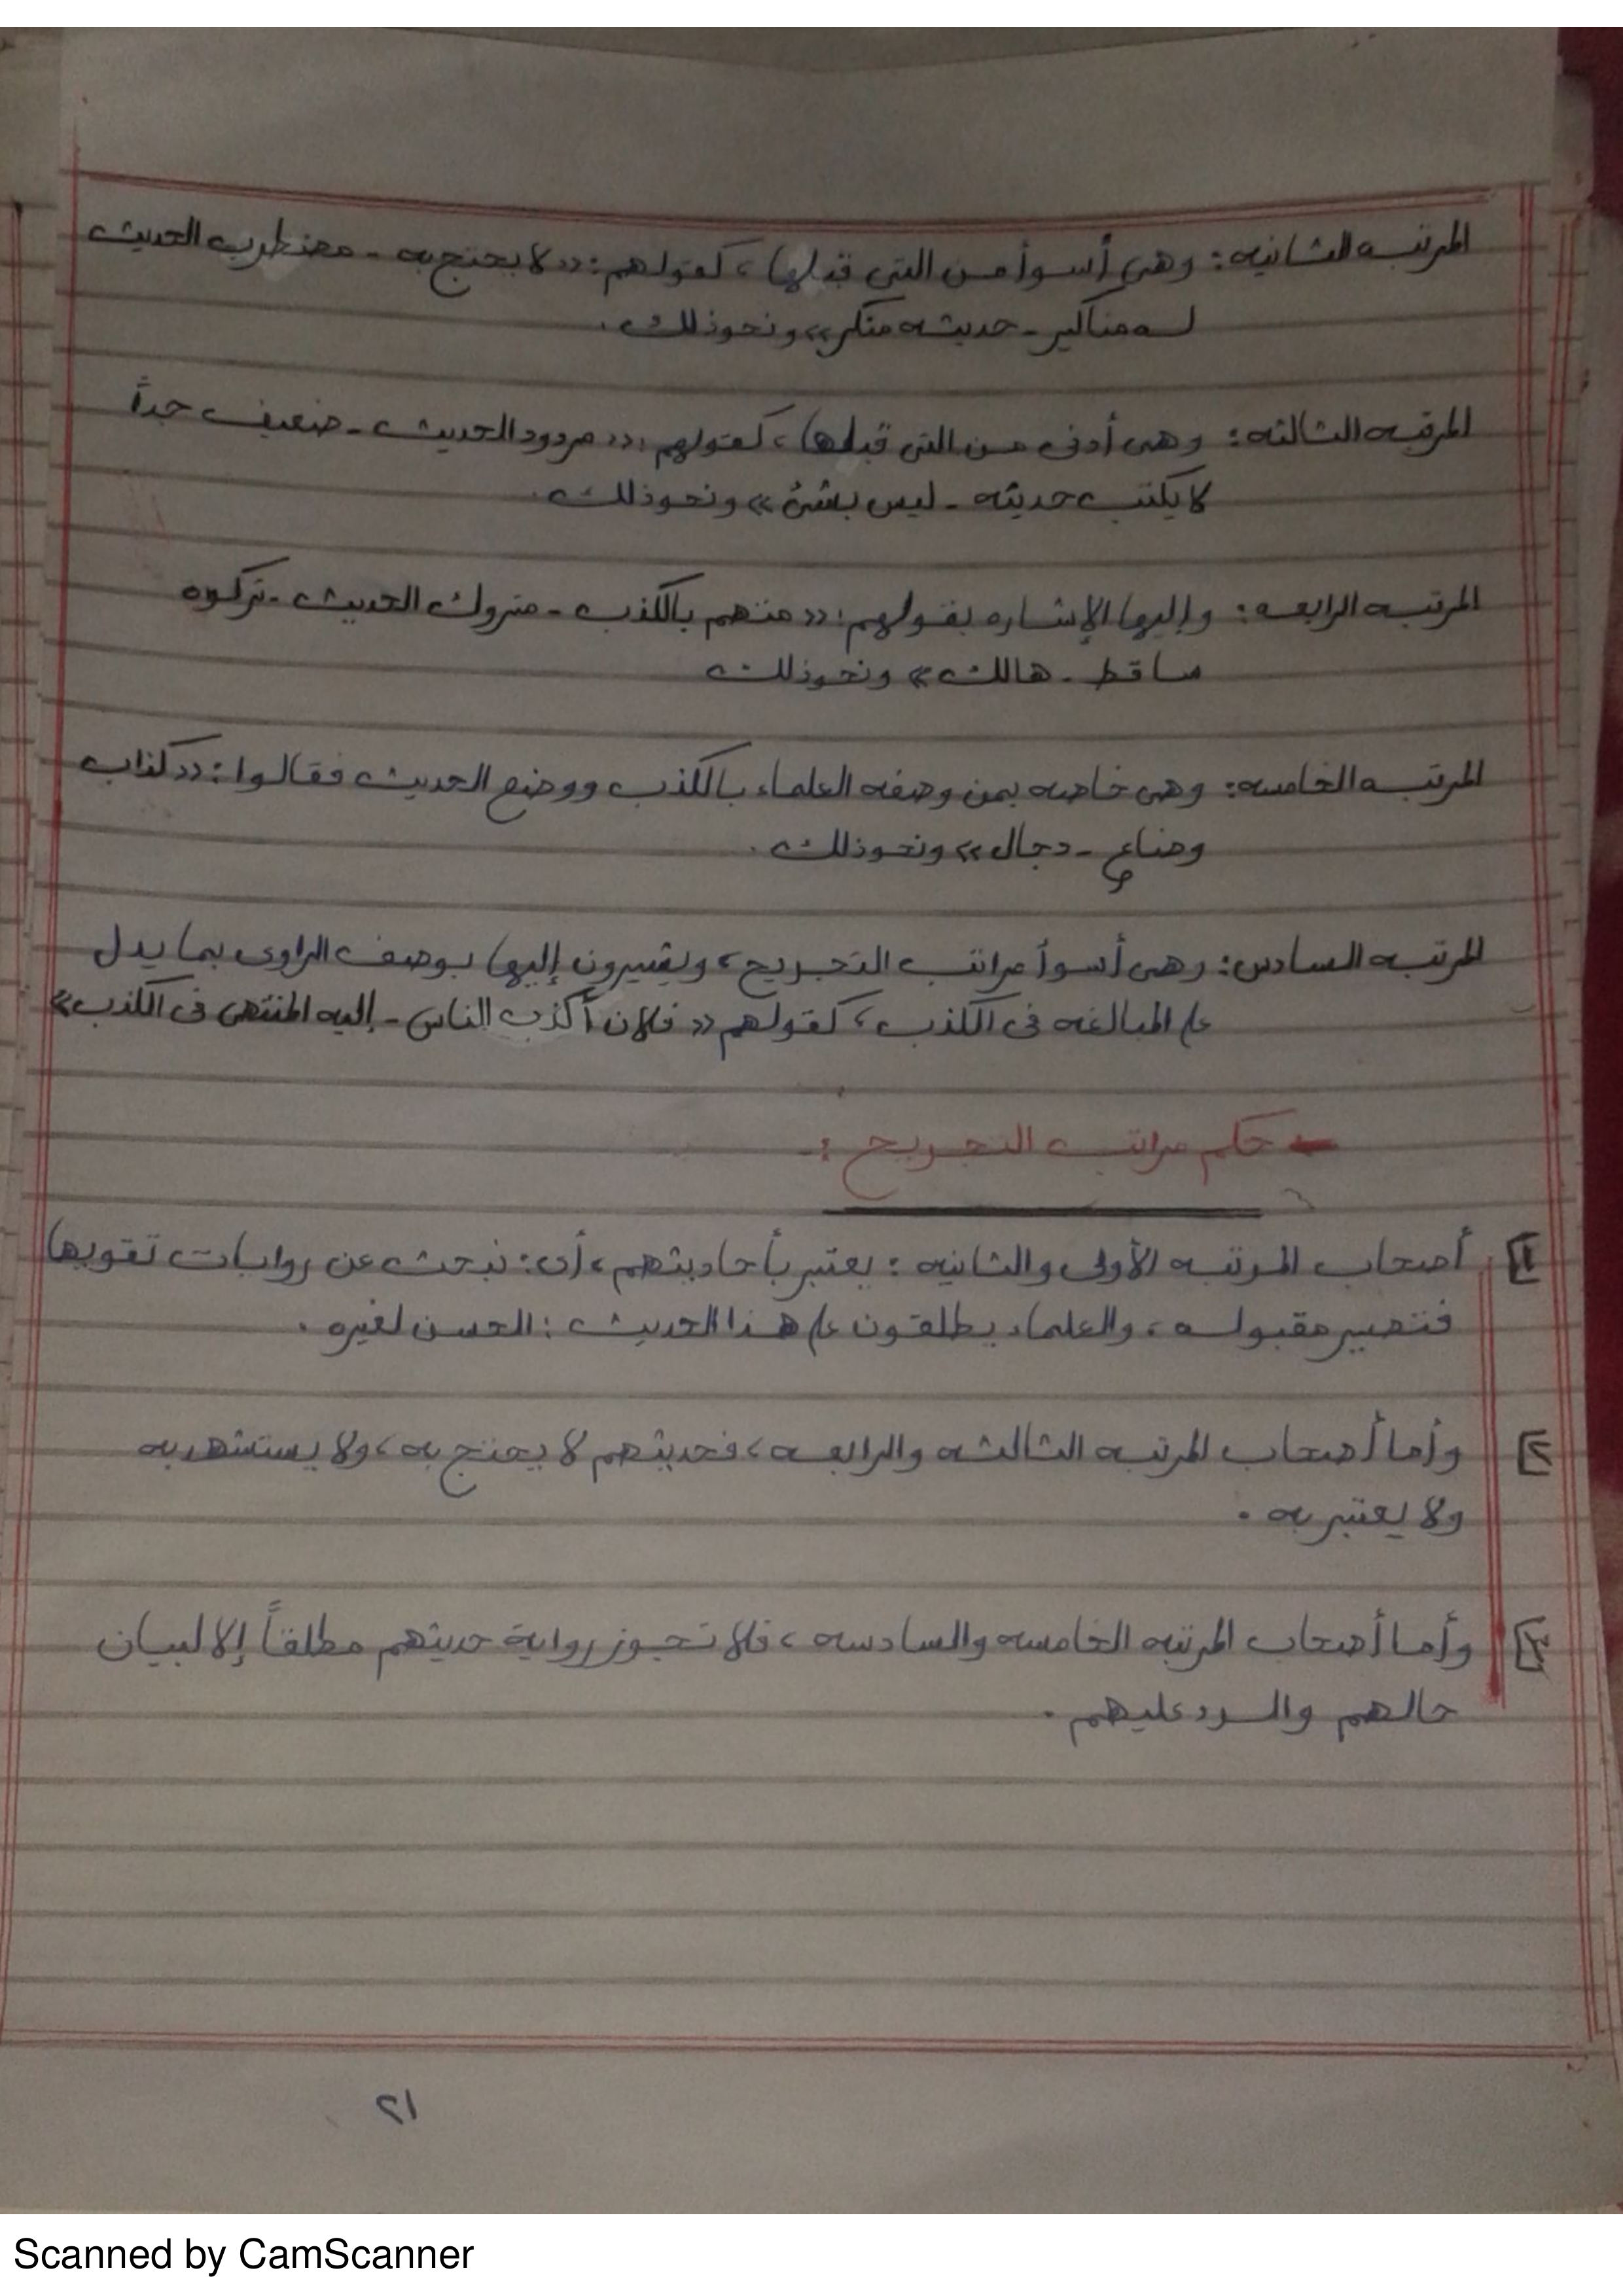 المرتبه الثانيه: وهى أسوأ من التى قبلها، كقولهم: «لا يحتج به - مضطرب الحديث
له مناكير - حديثه منكر» ونحو ذلك.
المرتبه الثالثه: وهى أدنى من التى قبلها، كقولهم: «مردود الحديث - ضعيف جداً
لا يكتب حديثه - ليس بشئ» ونحو ذلك.
المرتبه الرابعه: وإليها الإشاره بقولهم: «متهم بالكذب - متروك الحديث - تركوه
ساقط - هالك» ونحو ذلك
المرتبه الخامسه: وهى خاصه بمن وصفه العلماء بالكذب ووضع الحديث فقالوا: «كذاب
وضاع - دجال» ونحو ذلك.
المرتبه السادس: وهى أسوأ مراتب التجريح، ويشيرون إليها بوصف الراوى بما يدل
على المبالغه فى الكذب، كقولهم «فلان أكذب الناس - إليه المنتهى فى الكذب»
← حكم مراتب التجريح :-
١] أصحاب المرتبه الأولى والثانيه: يعتبر بأحاديثهم، أى: نبحث عن روايات تقويها
فتصير مقبوله، والعلماء يطلقون على هذا الحديث: الحسن لغيره.
٢] وأما أصحاب المرتبه الثالثه والرابعه، فحديثهم لا يحتج به، ولا يستشهد به
ولا يعتبر به.
٣] وأما أصحاب المرتبه الخامسه والسادسه، فلا تجوز رواية حديثهم مطلقاً إلا لبيان
حالهم والرد عليهم.
١٢
Scanned by CamScanner